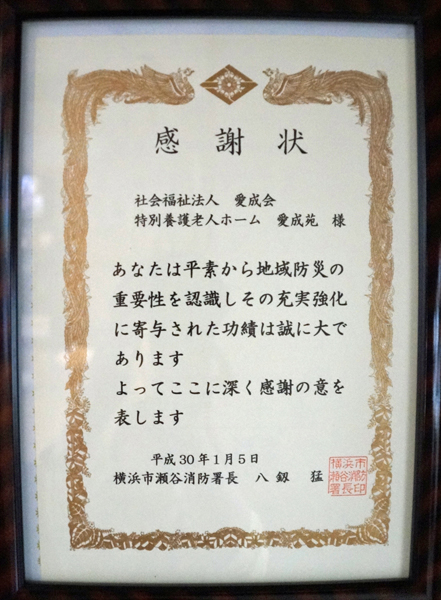 感謝状
社会福祉法人 愛成会
特別養護老人ホーム 愛成苑 様
あなたは平素から地域防災の
重要性を認識しその充実強化
に寄与された功績は誠に大で
あります
よってここに深く感謝の意を
表します
平成30年1月5日
横浜市瀬谷消防署長 八釼 猛
横浜市
瀬谷消防
署長印